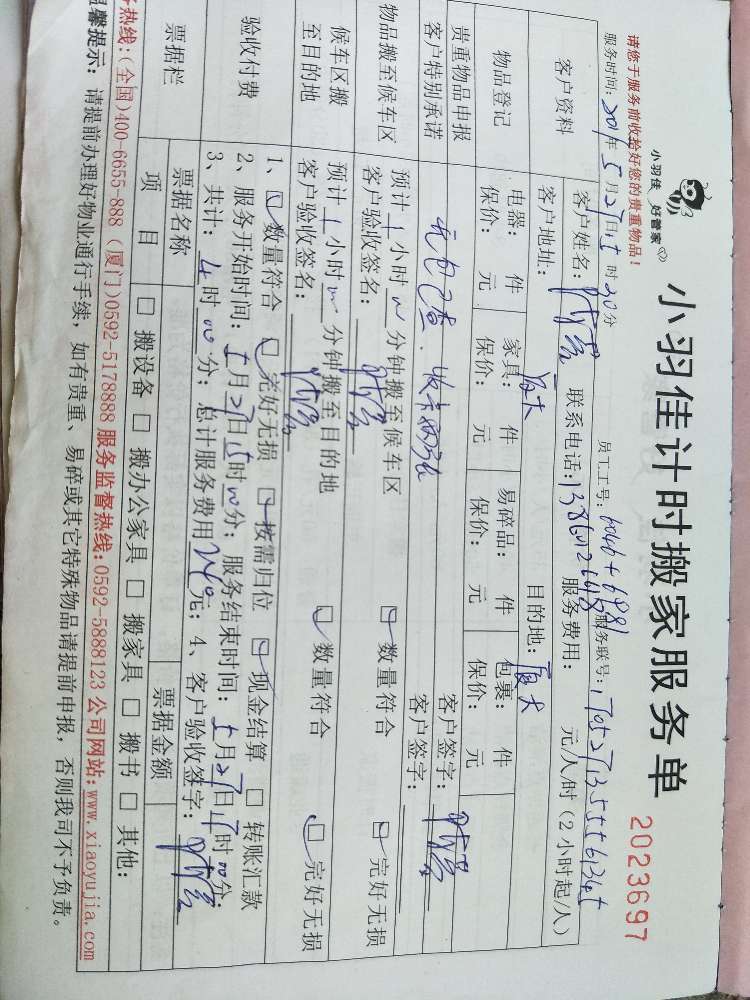 小羽佳 好管家
小羽佳计时搬家服务单
2023697
请您于服务前收拾好您的贵重物品!
员工工号:
服务联号:
服务时间: 年5月27日15时30分
客户资料
客户姓名: 联系电话: 服务费用: 元/人/时(2小时起/人)
客户地址: 厦大 目的地:厦大
物品登记
电器: 件 家具: 件 易碎品: 件 包裹: 件
保价: 元 保价: 元 保价: 元 保价: 元
贵重物品申报 客户签字:
客户特别承诺 客户签字:
物品搬至候车区
预计1小时 分钟搬至候车区 数量符合 完好无损
客户验收签名:
候车区搬至目的地
预计1小时 分钟搬至目的地 数量符合 完好无损
客户验收签名:
验收付费
1、数量符合 完好无损 按需归位 现金结算 □ 转账汇款
2、服务开始时间:5月27日15时00分;服务结束时间:5月27日 时00分;
3、共计:4时00分;总计服务费用 元;4、客户验收签字:
票据栏
票据名称 票据金额
项目 □ 搬设备 □ 搬办公家具 □ 搬家具 □ 搬书 □ 其他:
热线:(全国)400-6655-888 (厦门)0592-5178888 服务监督热线:0592-5888123 公司网站:www.xiaoyujia.com
温馨提示:请提前办理好物业通行手续,如有贵重、易碎或其它特殊物品请提前申报,否则我司不予负责。